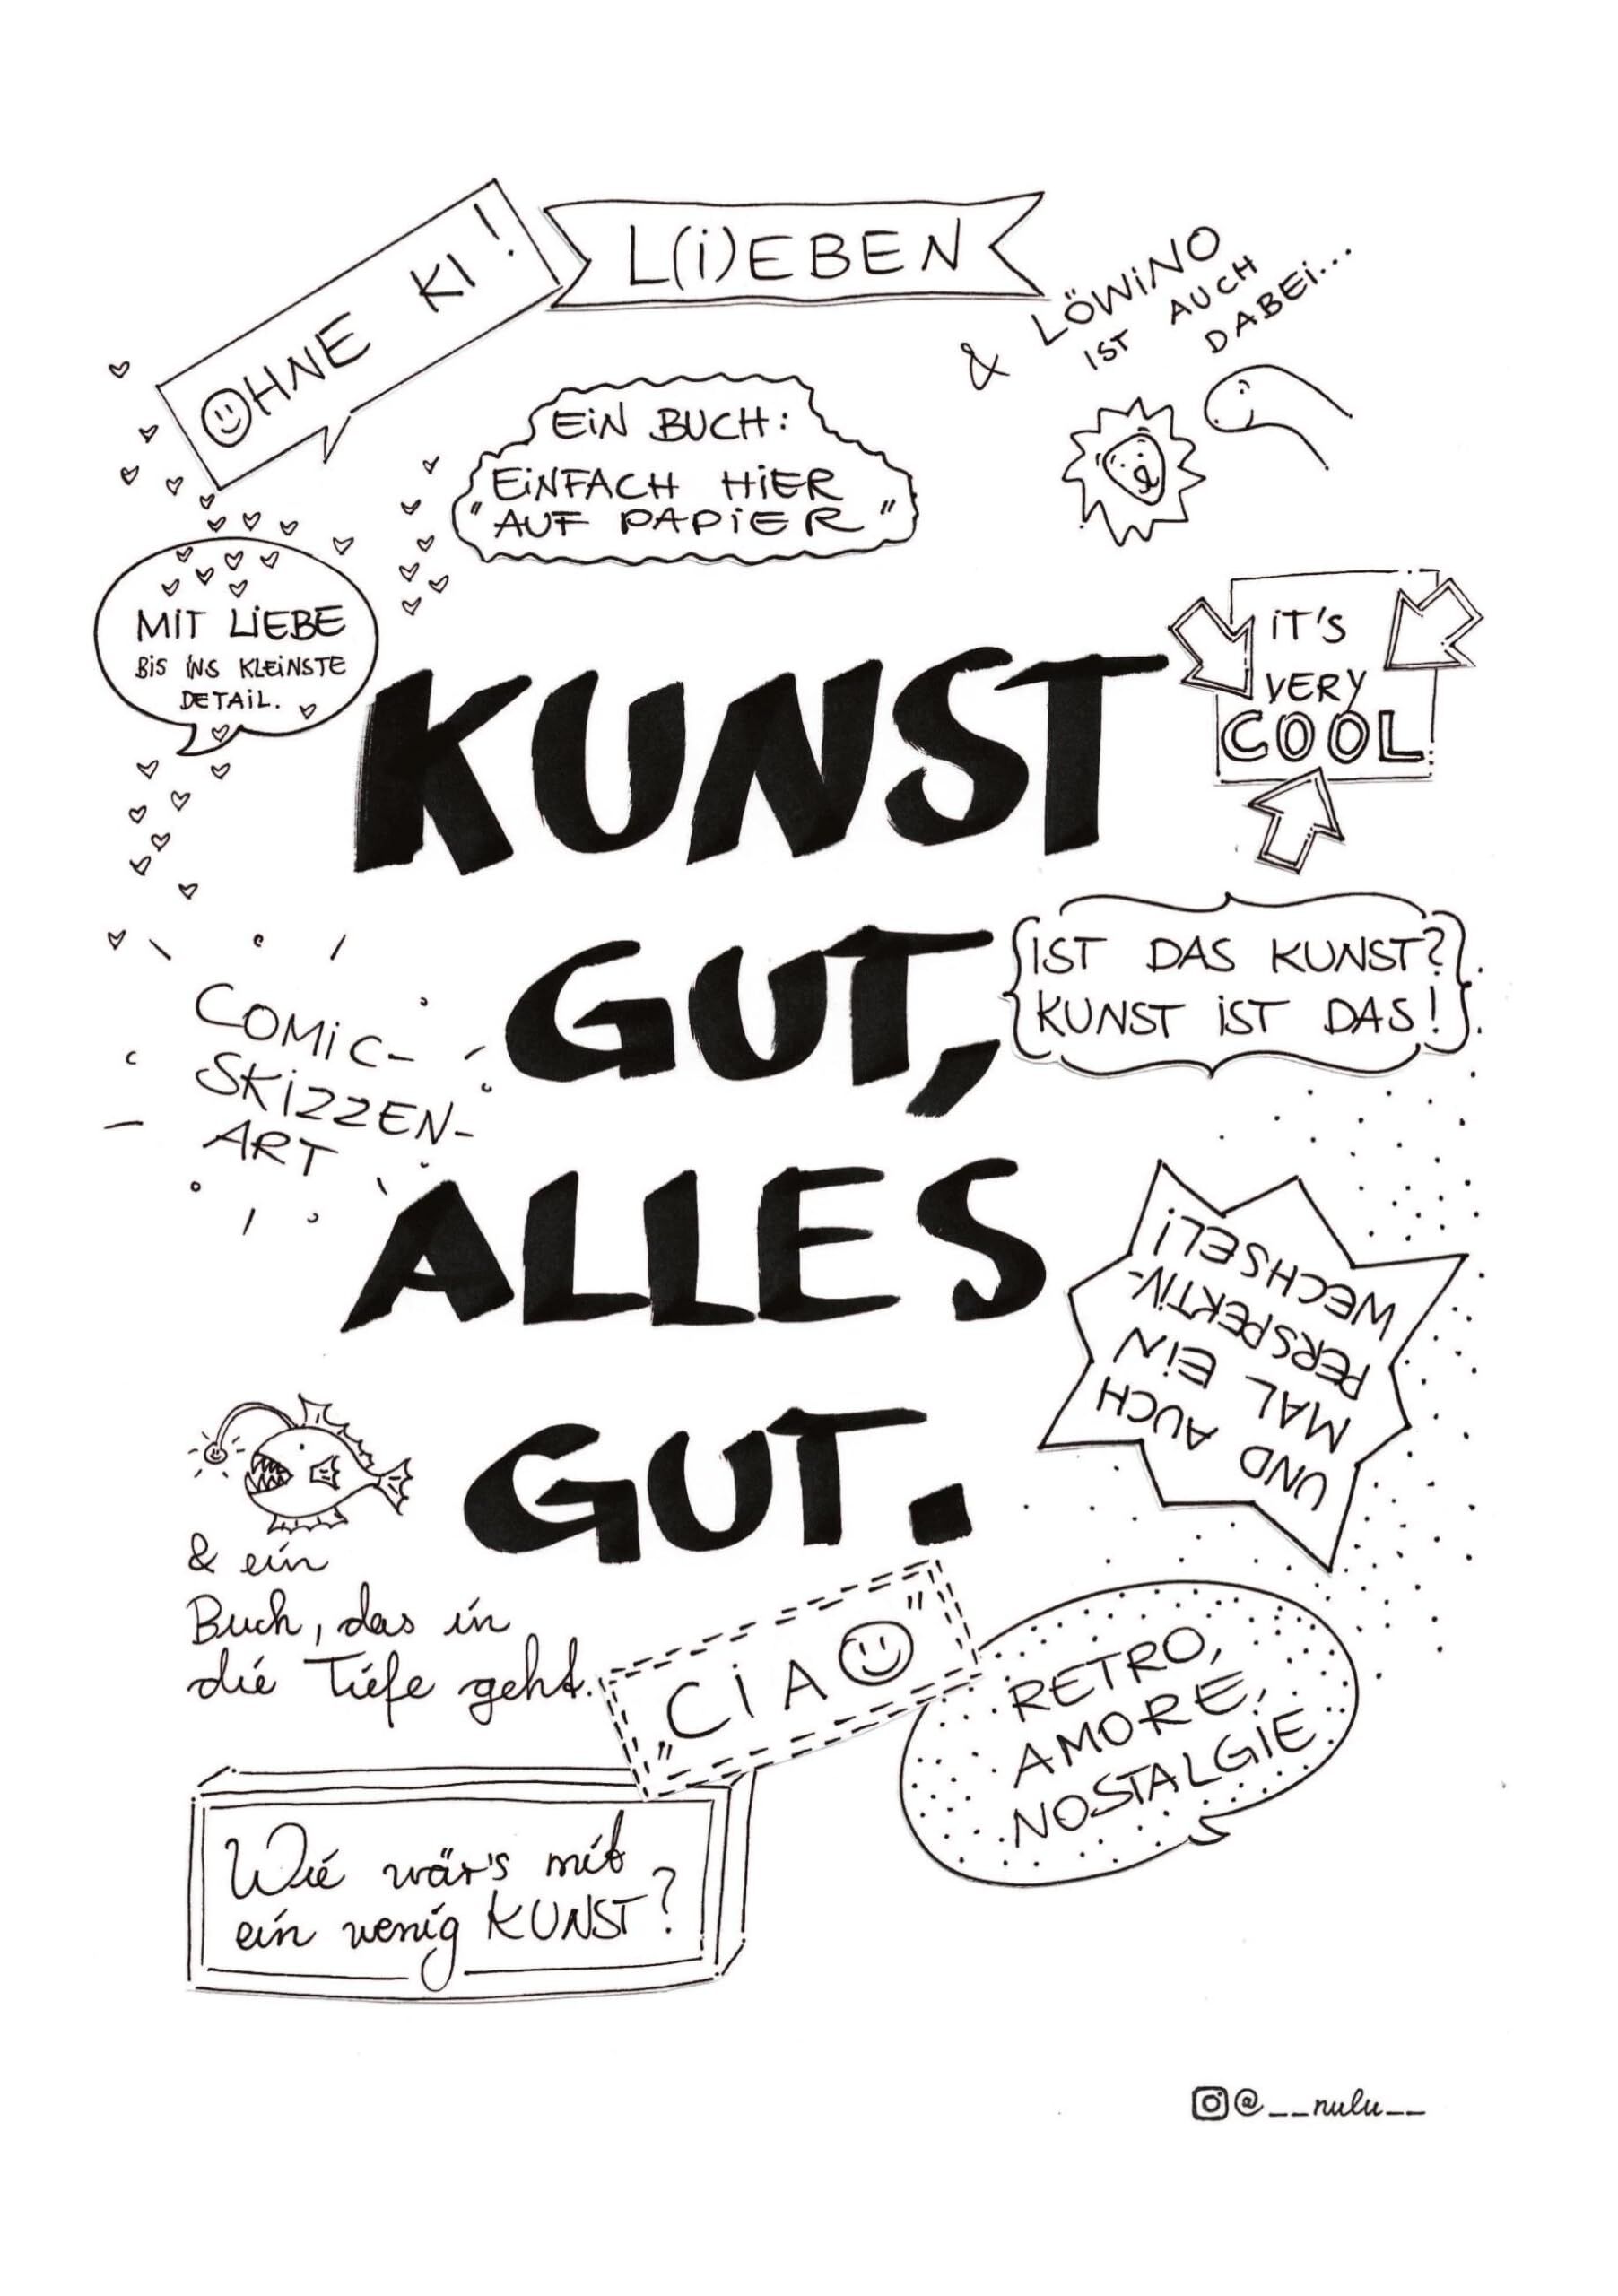 OHNE KI!
L(i)EBEN
& LÖWiNO
IST AUCH
DABEi...
EiN BUCH:
EiNFACH HiER
"AUF PAPiER"
MiT LiEBE
BiS iNS KLEiNSTE
DETAiL.
iT'S
VERY
COOL
KUNST
GUT,
IST DAS KUNST?
KUNST iST DAS!
COMiC-
SKiZZEN-
ART
ALLES
GUT.
UND AUCH
MAL EiN
PERSPEKTiV-
WECHSEL!
& ein
Buch, das in
die Tiefe geht.
"CiAO"
RETRO,
AMORE,
NOSTALGiE
Wie wär's mit
ein wenig KUNST?
@__nulu__